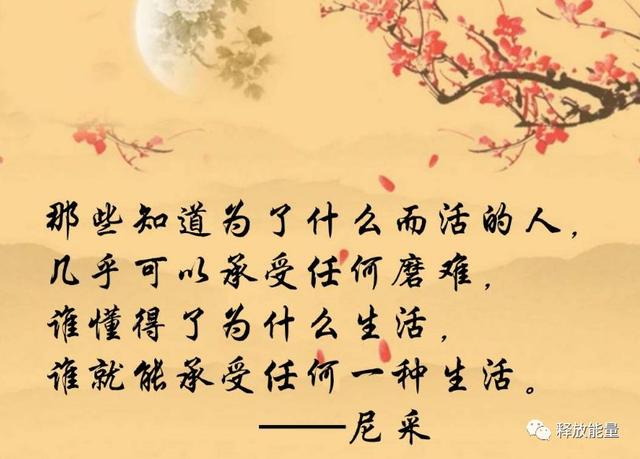 那些知道为了什么而活的人，
几乎可以承受任何磨难，
谁懂得了为什么生活，
谁就能承受任何一种生活。
——尼采
释放能量